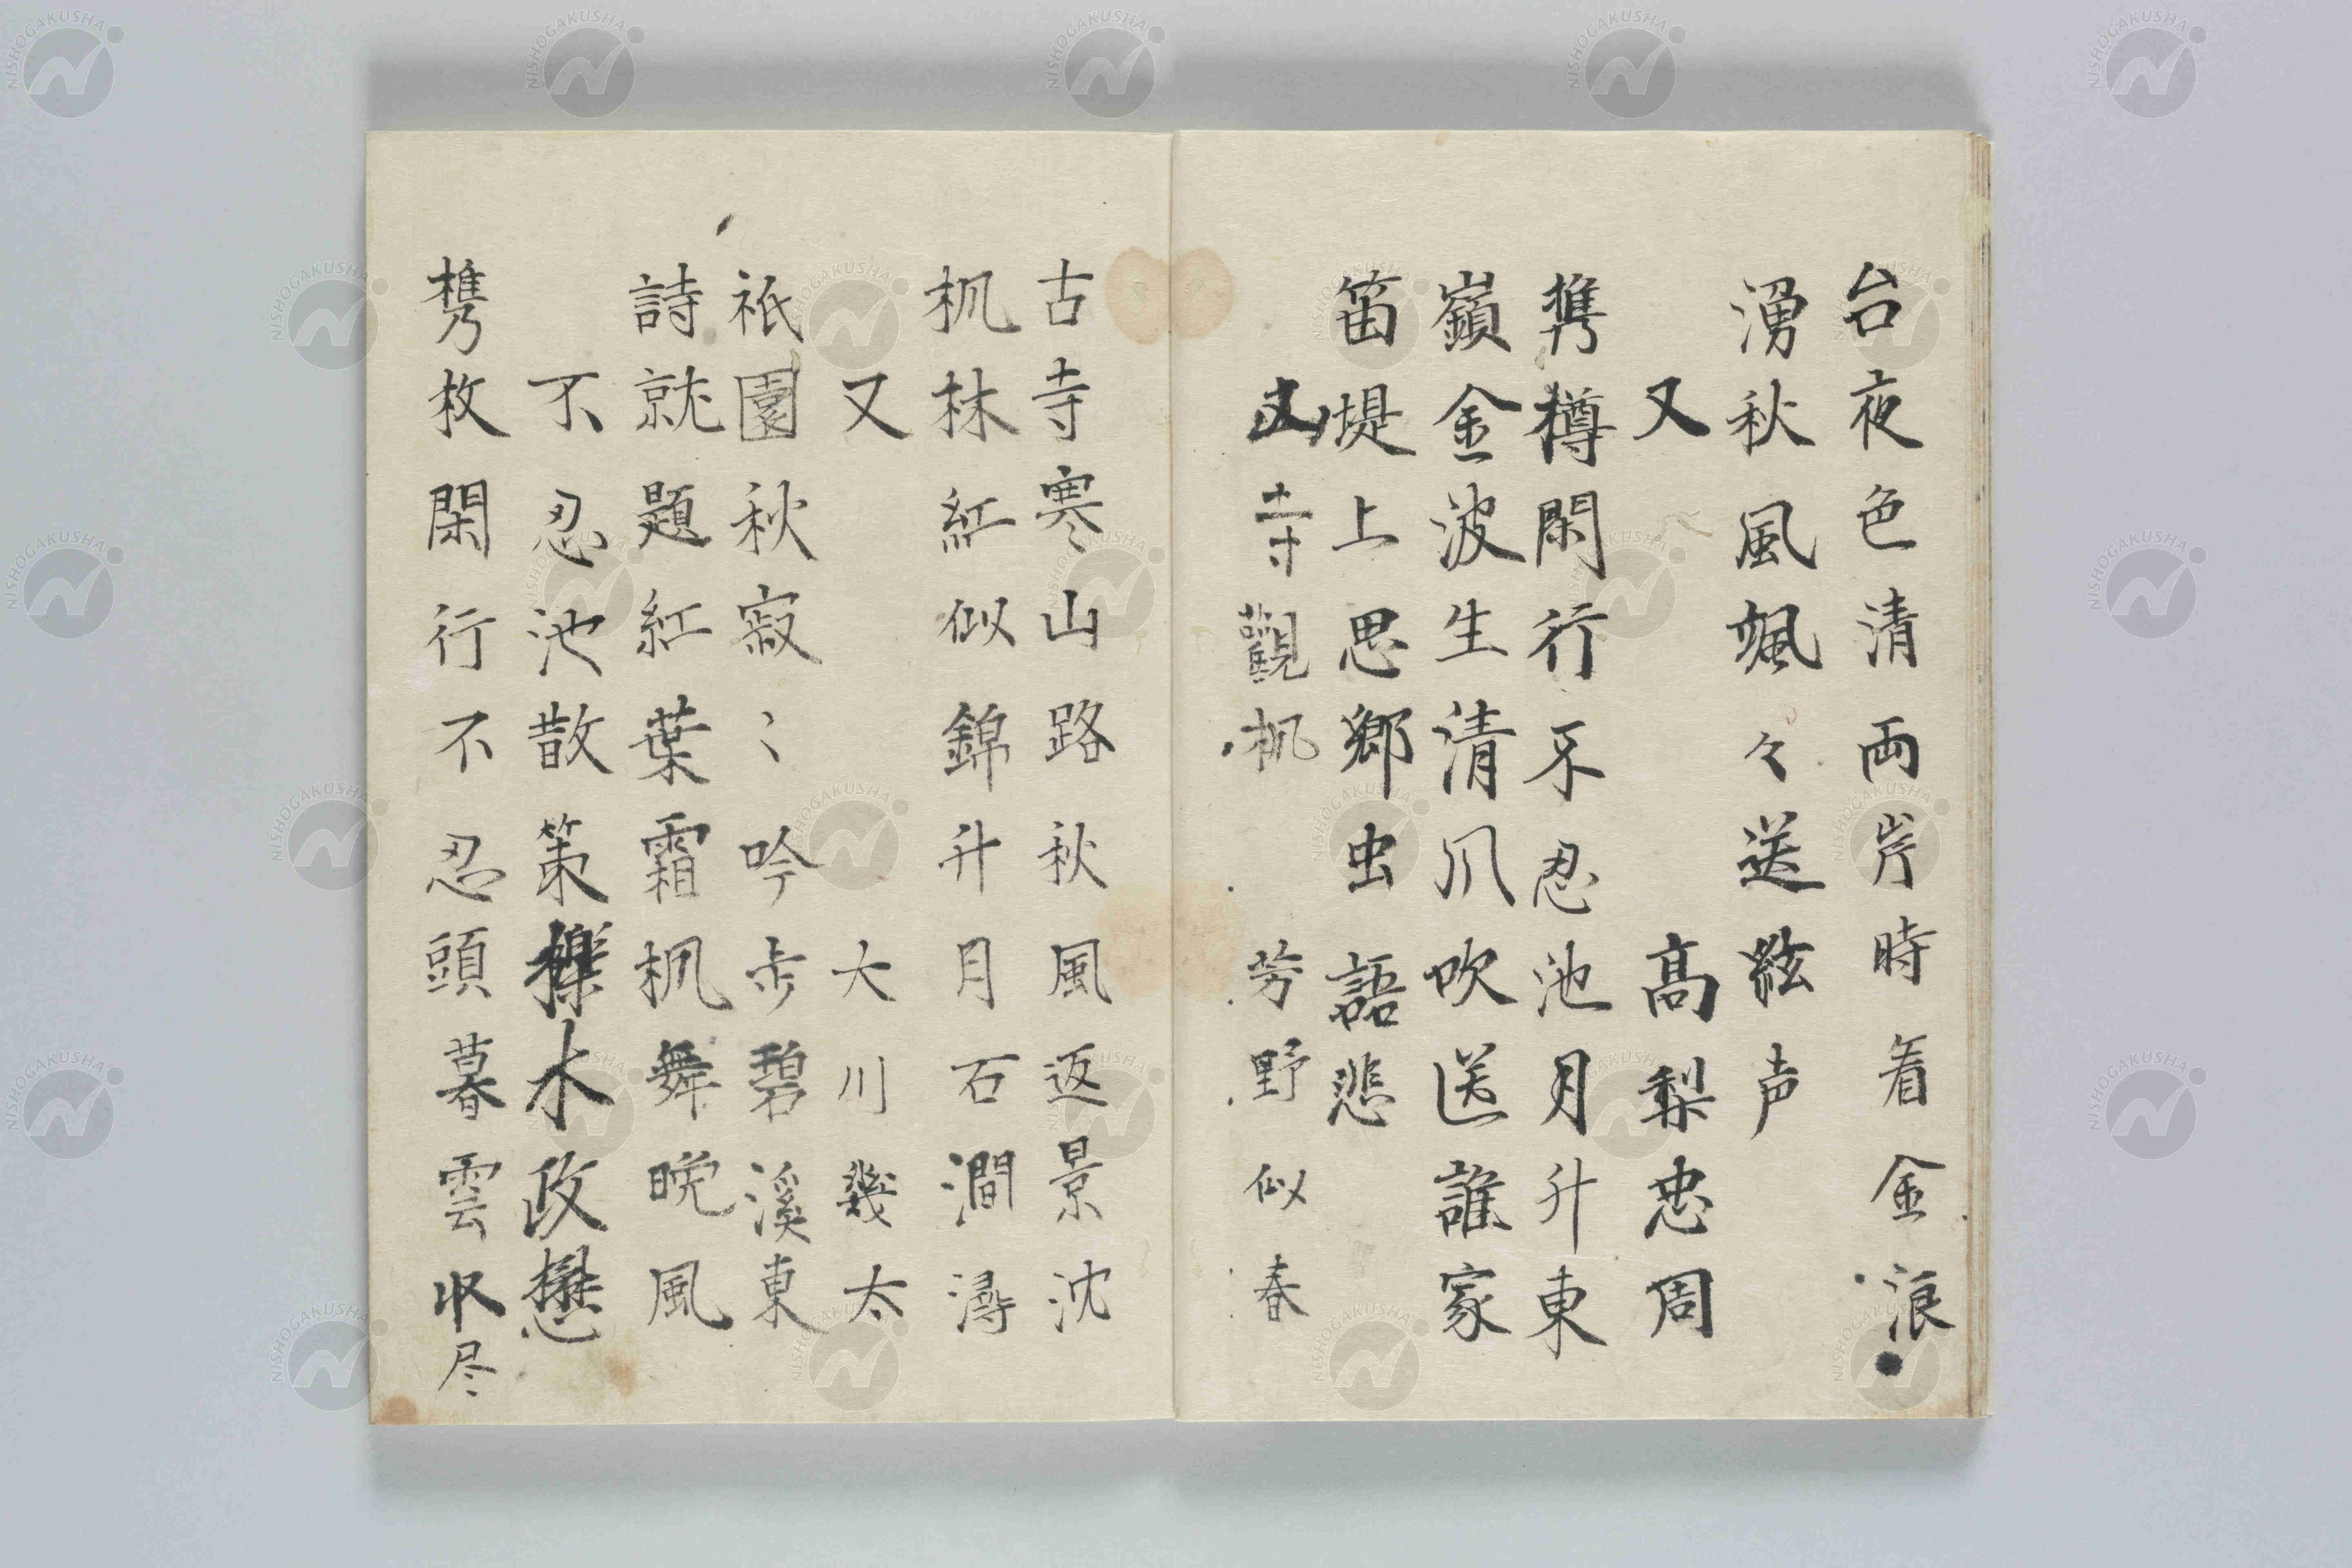 台夜色清両岸時看金浪
湧秋風颯々送絃声
又　高梨忠周
携樽閑行不忍池月升東
嶺金波生清爪吹送誰家
笛堤上思郷虫語悲
山寺觀枫　芳野似春
古寺寒山路秋風返景沈
枫林紅似錦升月石澗潯
又　大川幾太
祇園秋寂〻吟歩碧溪東
詩就題紅葉霜枫舞晩風
不忍池散策　木政懋
携杖閑行不忍頭暮雲収尽
NISHOGAKUSHA